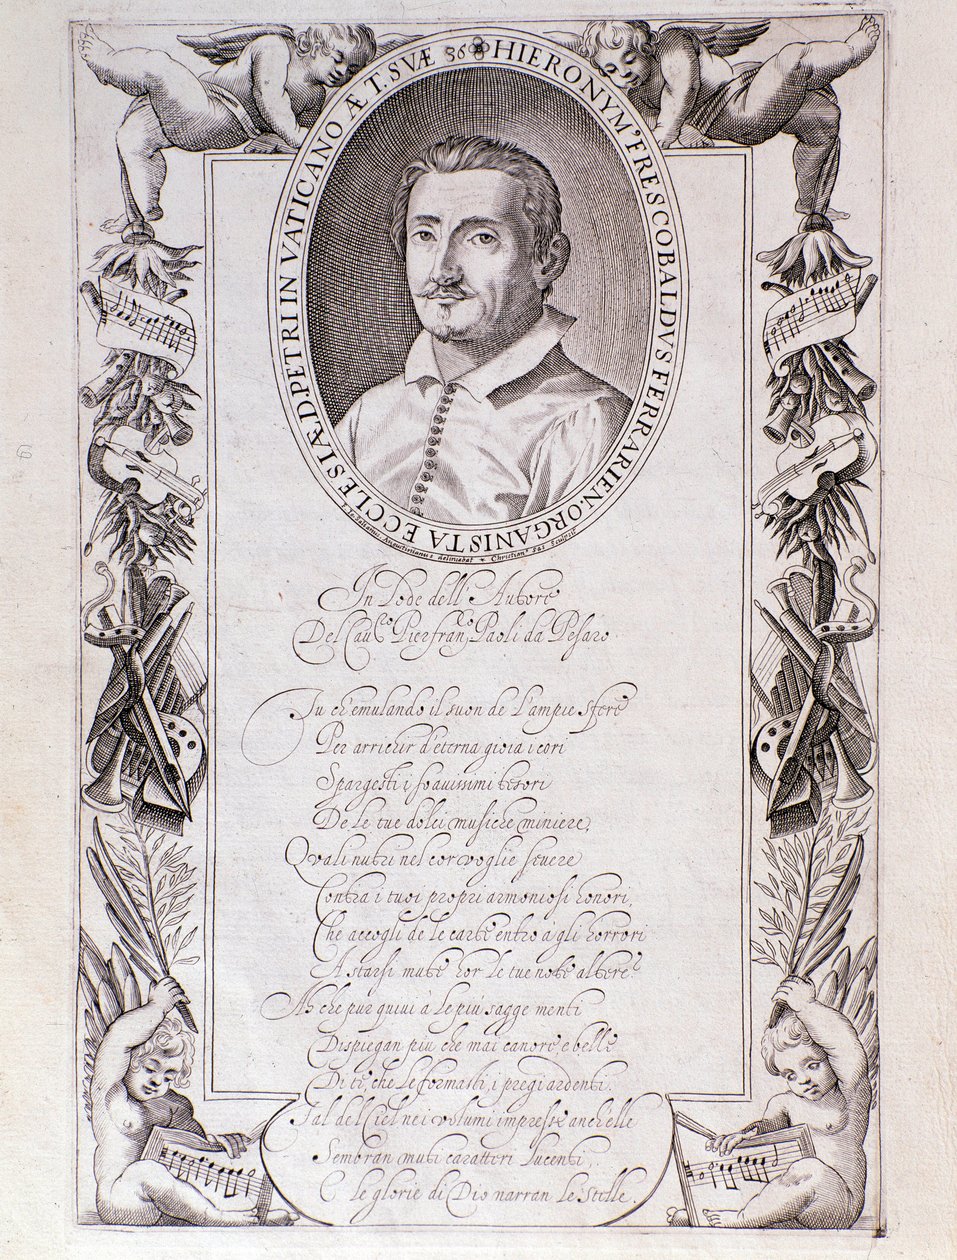 HIERONYM' FRESCOBALDVS FERRARIEN. ORGANISTA ECCLESIÆ D. PETRI IN VATICANO ÆT. SVÆ 36
Io. Salianus Augustinianus delineabat + Christian' Sas Sculpsit
In Lode dell' Autore
Del Cau.co Pierfran.co Paoli da Pesaro.
Tu ch'emulando il suon de l'ampie sfere
Per arrichir d'eterna gioia i cori
Spargesti i soauissimi tesori
De le tue dolci musiche miniere,
Quali nutri nel cor voglie seuere
Contra i tuoi propri armoniosi honori,
Che accogli de le carte entro à gli horrori
A starsi mute hor le tue note altere?
Ah che pur quiui a le più sagge menti
Dispiegan più che mai canore, e belle
Di tè, che le formasti, i pregi ardenti.
Tal del Ciel nei volumi impresse anch'elle
Sembran muti caratteri lucenti,
E le glorie di Dio narran le Stelle.